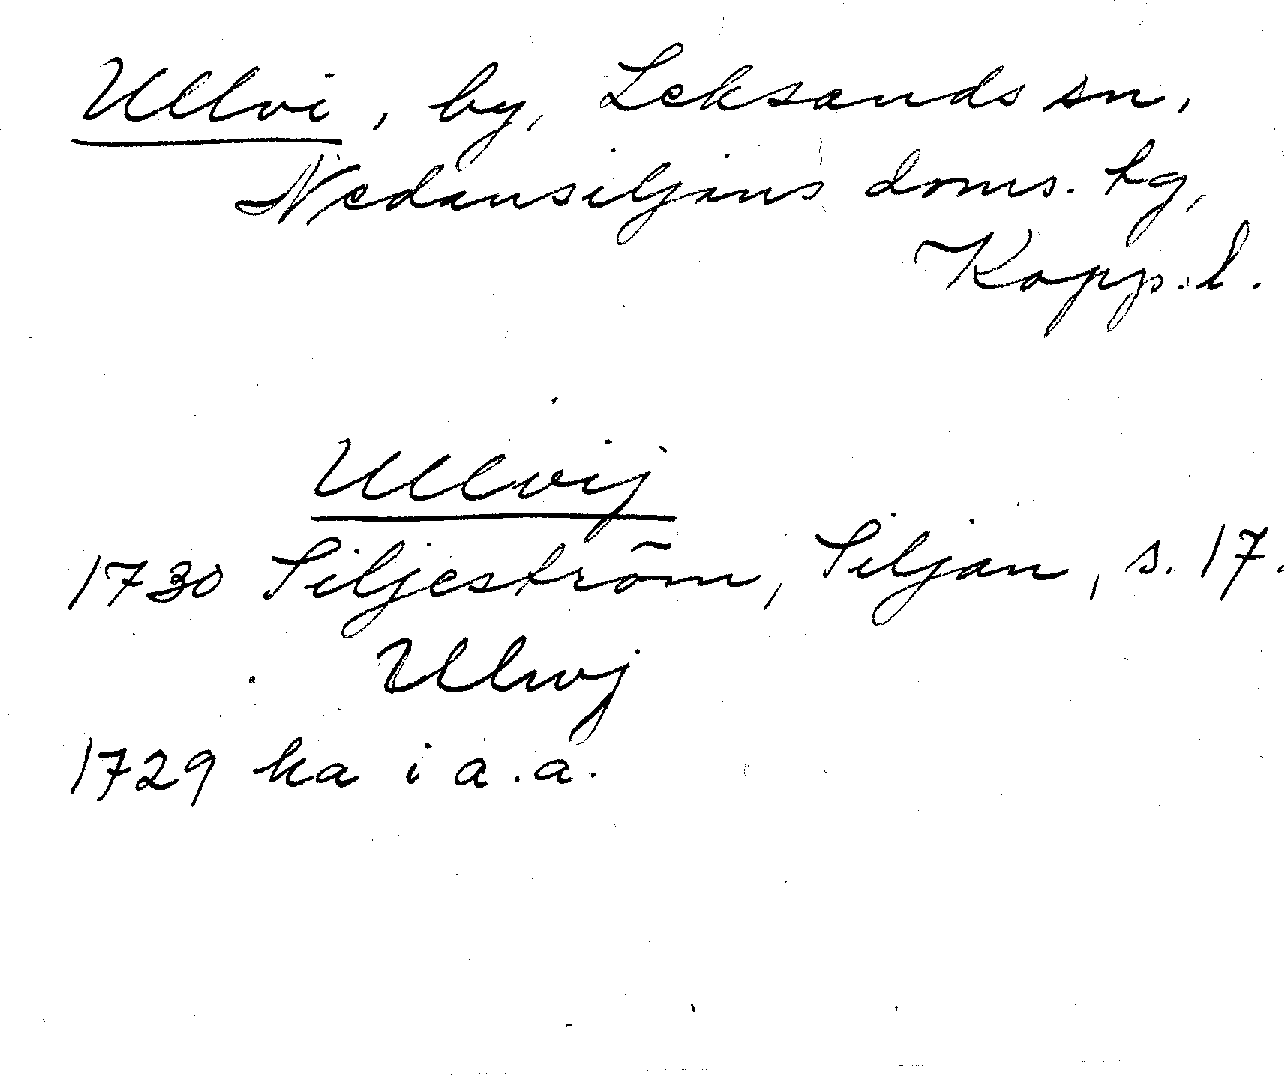 Ullvi, by, Leksands sn,
Nedansiljans doms. hg,
Kopp. l.
Ullvij
1730 Siljeström, Siljan, s. 17.
Ulwj
1729 ka i a.a.